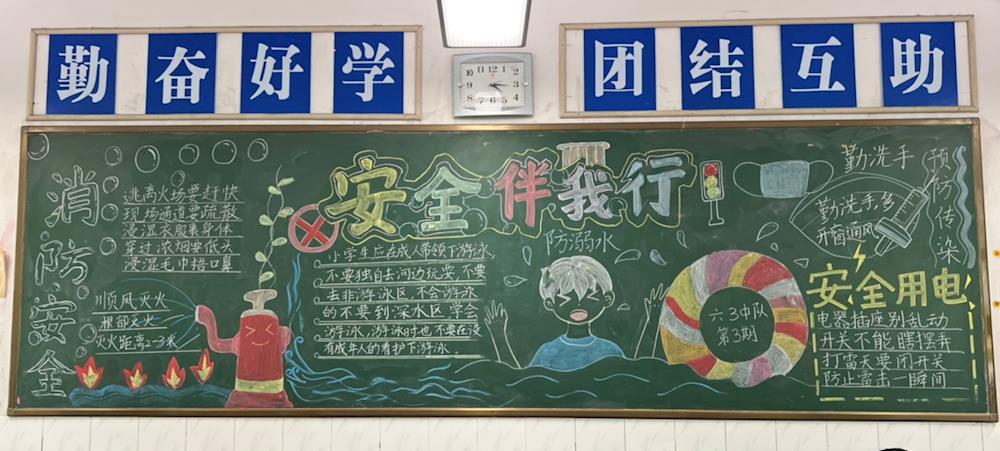 勤奋好学
团结互助
12 1 2 3 4 5 6 7 8 9 10 11
消防安全
逃离火场要赶快
现场通道要疏散
浸湿衣服裹身体
穿过浓烟要低头
浸湿毛巾捂口鼻
顺风灭火
根部灭火
灭火距离2-3米
安全伴我行
小学生应在成人带领下游泳
不要独自去河边玩耍,不要
去非游泳区,不会游泳
的不要到深水区,学会
游泳,游泳时也不要在没
有成年人的看护下游泳.
防溺水
六3中队
第3期
勤洗手
勤洗手,多
开窗通风
预防传染
安全用电
电器插座别乱动
开关不能瞎摆弄
打雷天要闭开关
防止雷击一瞬间